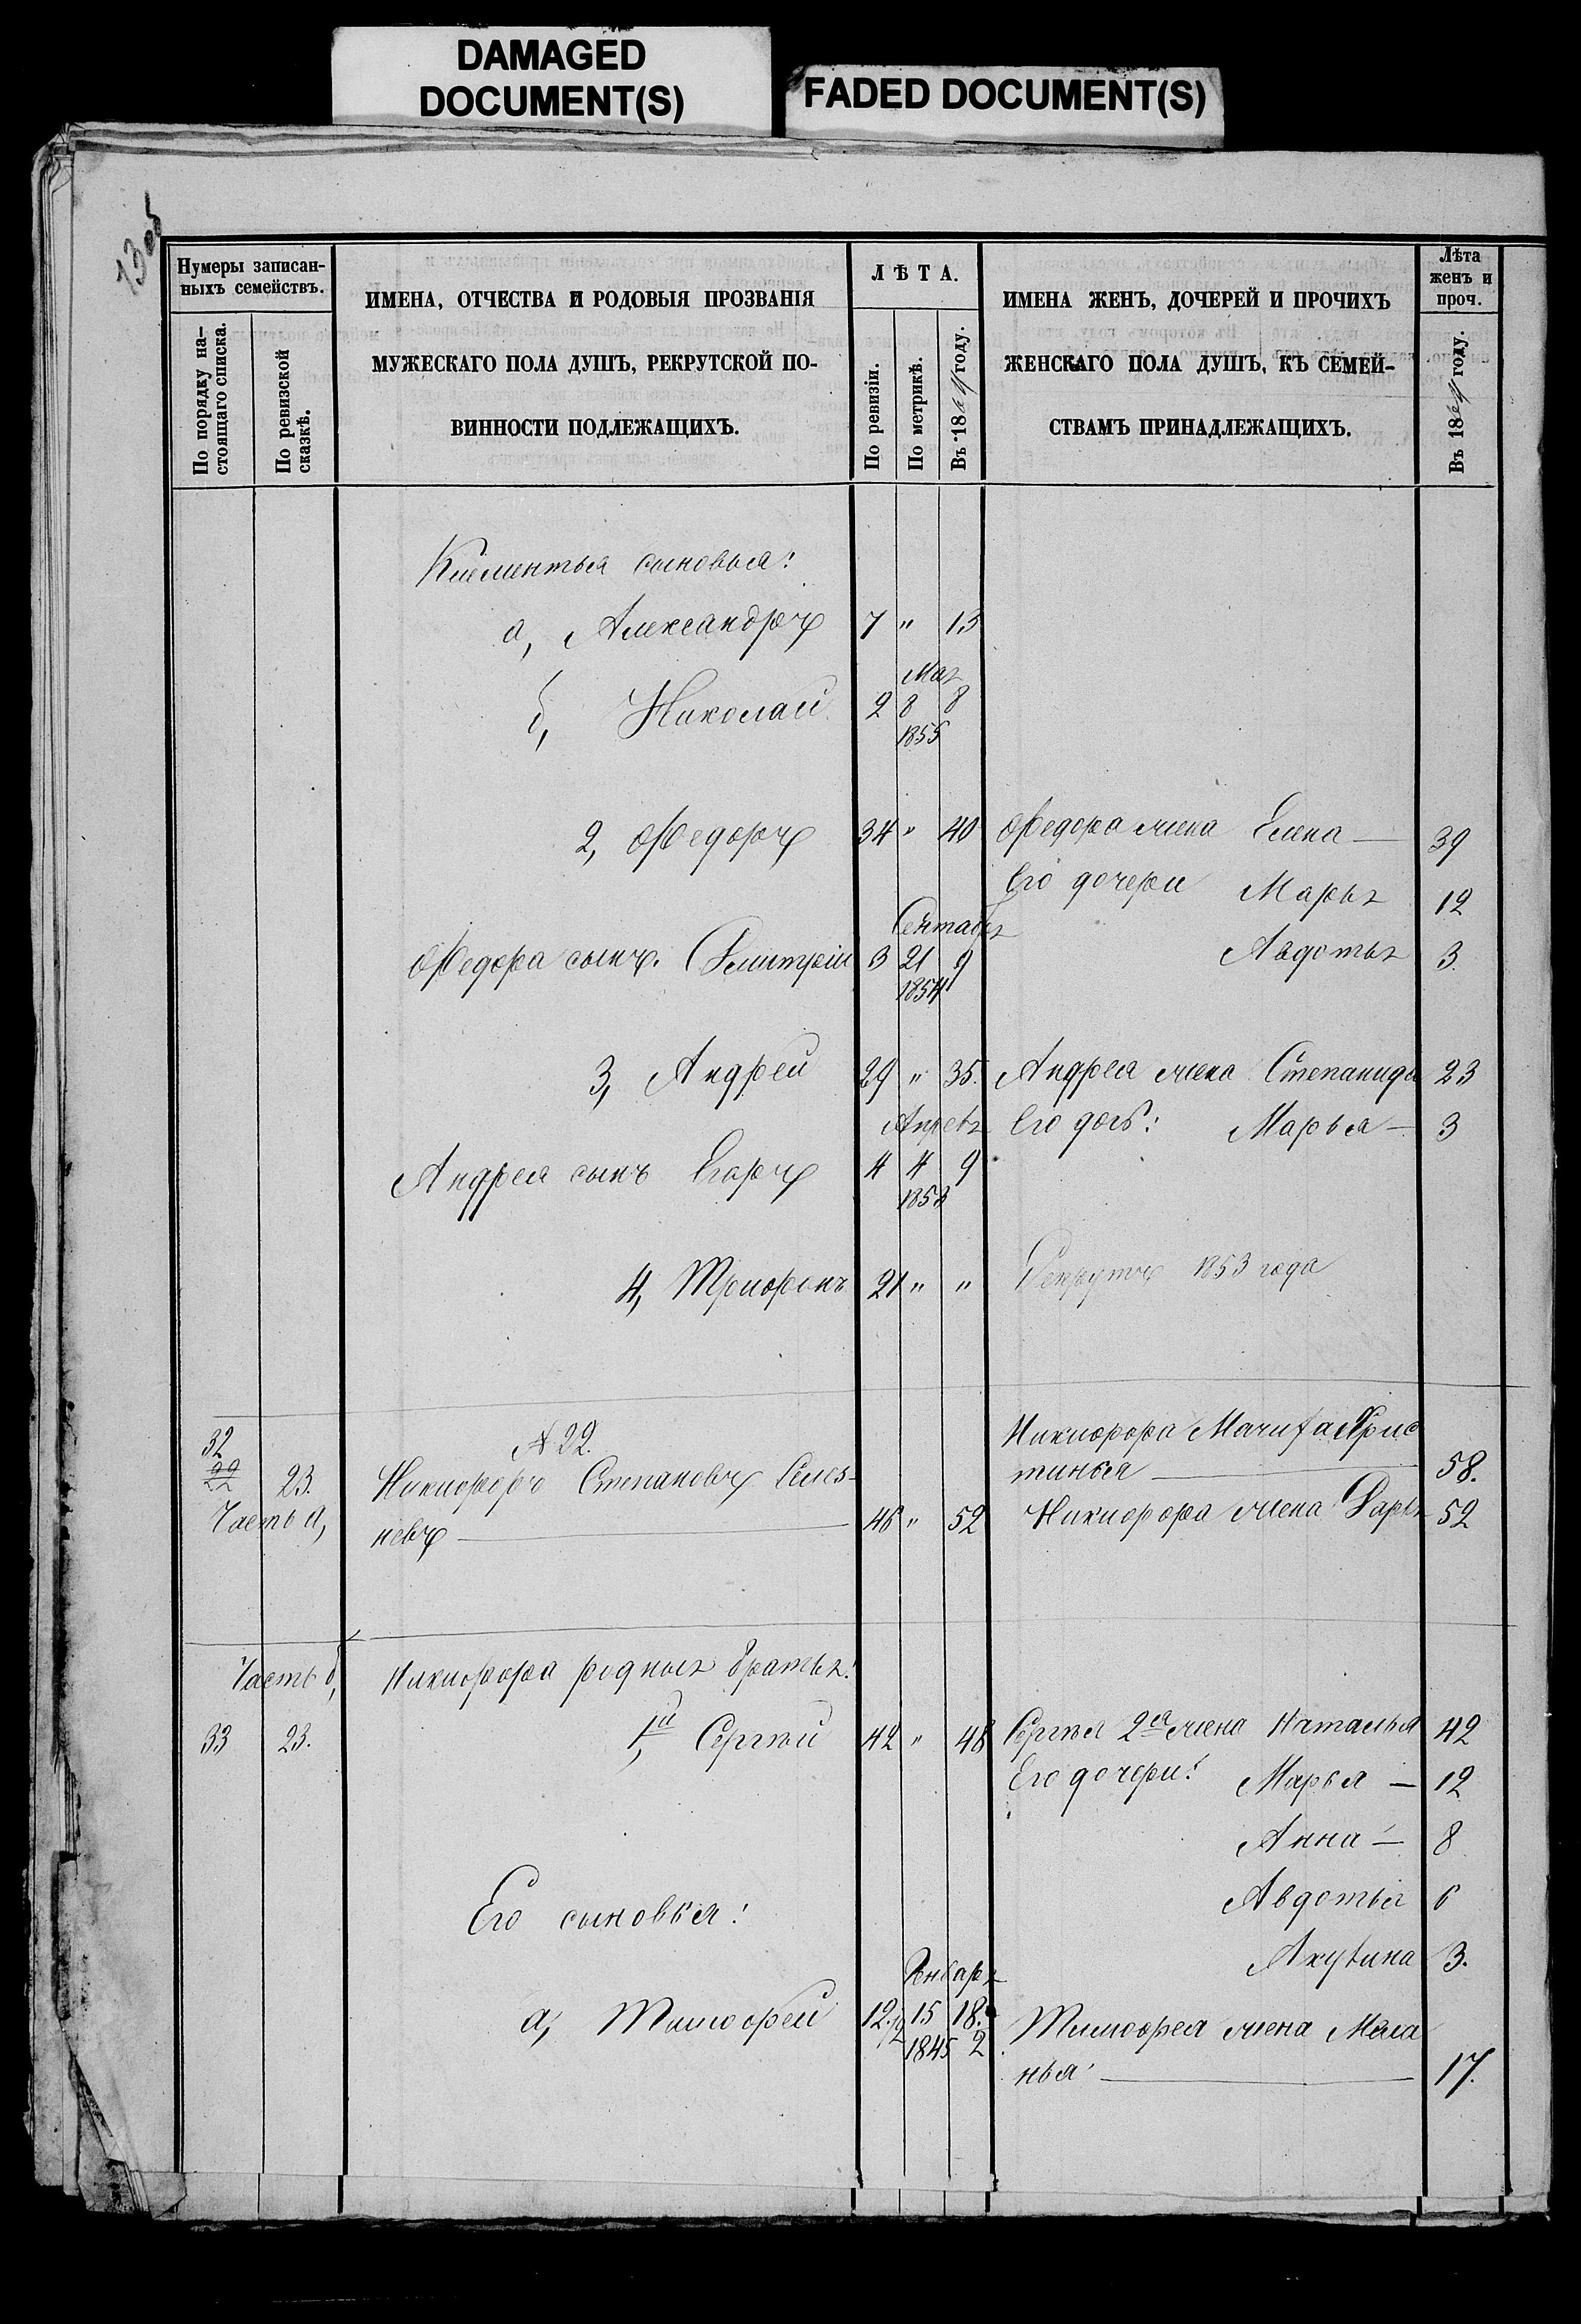 DAMAGED
DOCUMENT(S)
FADED DOCUMENT(S)
130об
Нумеры записан-
ныхъ семействъ.
По порядку на-
стоящаго списка.
По ревизской
сказкѣ.
ИМЕНА, ОТЧЕСТВА И РОДОВЫЯ ПРОЗВАНІЯ
МУЖЕСКАГО ПОЛА ДУШЪ, РЕКРУТСКОЙ ПО-
ВИННОСТИ ПОДЛЕЖАЩИХЪ.
ЛѢТА.
По ревизіи.
По метрикѣ.
Въ 18 году.
ИМЕНА ЖЕНЪ, ДОЧЕРЕЙ И ПРОЧИХЪ
ЖЕНСКАГО ПОЛА ДУШЪ, КЪ СЕМЕЙ-
СТВАМЪ ПРИНАДЛЕЖАЩИХЪ.
Лѣта
женъ и
проч.
Въ 18 году.
Климентья сыновья:
а, Александръ 7 " 13
Мая
б, Николай 2 8 8
1855
2, Федоръ 34 " 40 Федора жена Елена — 39
Его дочери Марья 12
Сентабря
Федора сынъ. Дмитрій 3 21 9 Авдотья 3.
1854
3, Андрей 29 " 35. Андрея жена Степанида 23
Апреля Его дочь: Марья — 3
Андрея сынъ Егоръ 4 4 9
1853
4, Трифонъ 21 " " Рекрутъ 1853 года
32 № 22. Никифора Мачиха Хрис
22 23. Никифоръ Степановъ Селез- тинья — 58.
Часть а, невъ — 46 " 52 Никифора жена Дарья 52
Часть б, Никифора родныя братья:
33 23. 1й, Сергѣй 42 " 48 Сергѣя 2ая жена Наталья 42
Его дочери: Марья — 12
Анна — 8
Его сыновья: Авдотья 6
Января Акулина 3.
а, Тимофей 12. 1/2 15 18. Тимофея жена Мала
1845 2 нья — 17.